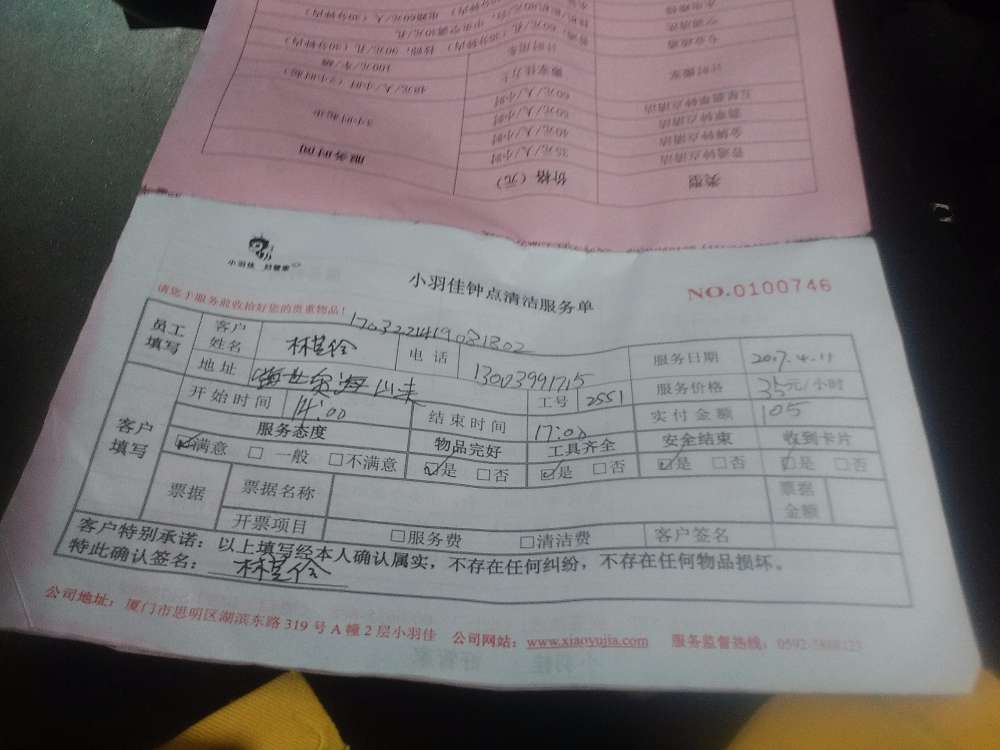 类型 价格（元） 服务时间
普通钟点清洁 35元/人/小时
金牌钟点清洁 40元/人/小时 3小时起步
翡翠钟点清洁 50元/人/小时
五星翡翠钟点清洁 60元/人/小时
计时搬家 搬家佳力士 48元/人/小时（2小时起）
计时用车 100元/车/辆
小羽佳 好管家
小羽佳钟点清洁服务单
NO.0100746
请您于服务前收拾好您的贵重物品！
170322419081802
员工填写 客户姓名 电话 13003991715 服务日期 2017.4.11
地址 工号 2551 服务价格 35元/小时
客户填写 开始时间 14:00 结束时间 17:00 实付金额 105
服务态度 物品完好 工具齐全 安全结束 收到卡片
☑满意 □ 一般 □不满意 ☑是 □否 ☑是 □否 ☑是 □否 ☑是 □否
票据 票据名称 票据金额
开票项目 □服务费 □清洁费 客户签名
客户特别承诺：以上填写经本人确认属实，不存在任何纠纷，不存在任何物品损坏。
特此确认签名：
公司地址：厦门市思明区湖滨东路 319 号 A 幢 2 层小羽佳 公司网站：www.xiaoyujia.com 服务监督热线：